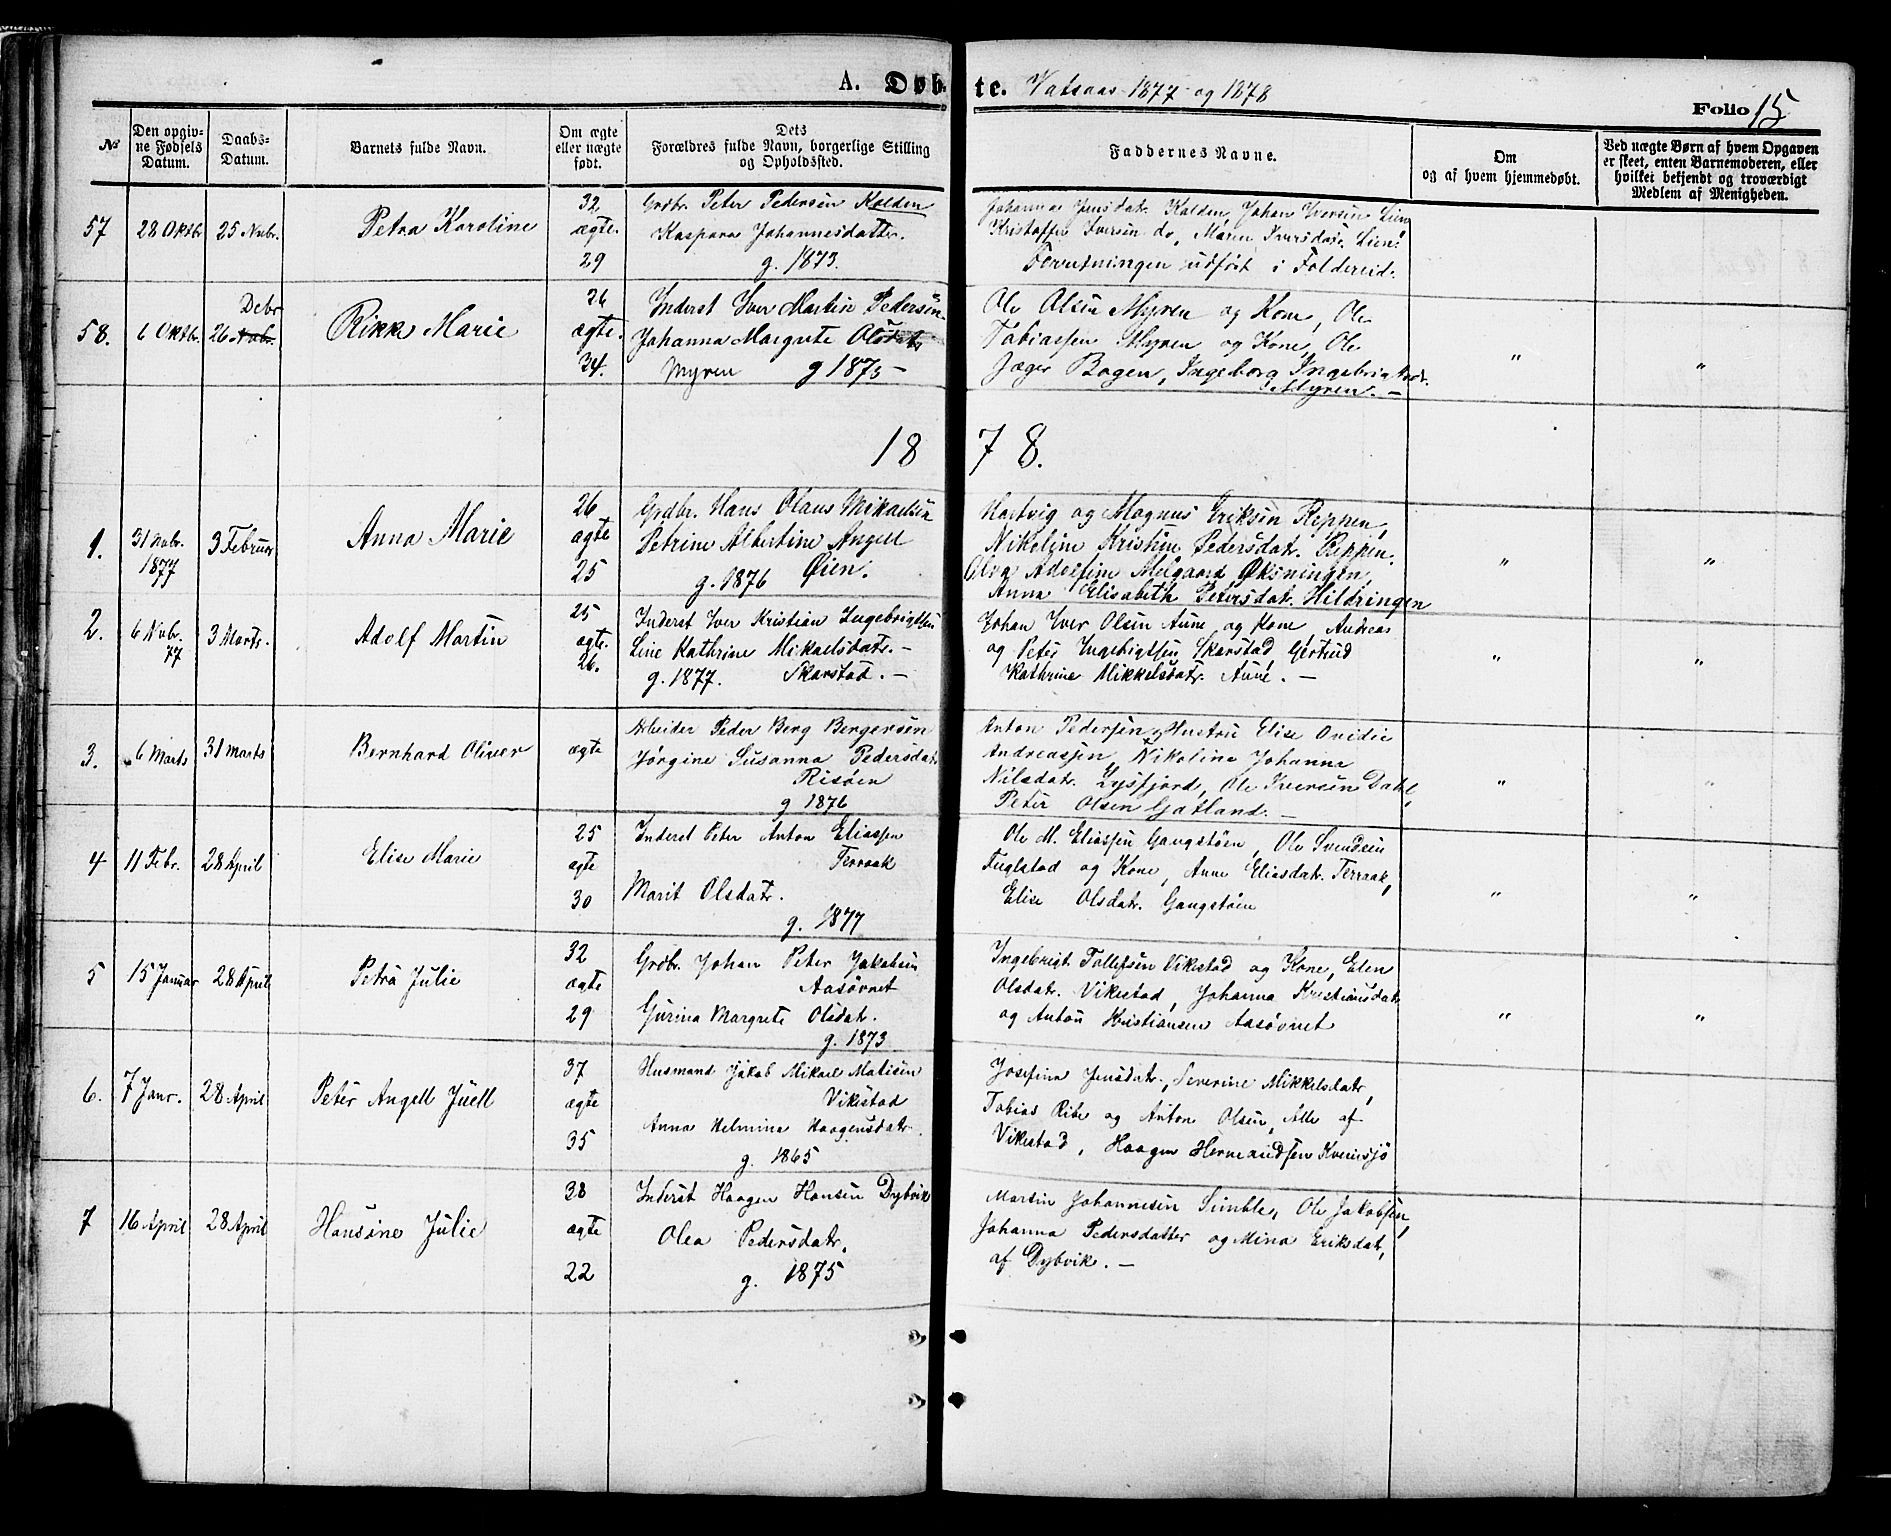 A. Døbte. Vatsaas 1877 og 1878
Folio 15
No
Den opgivne Fødsels Datum.
Daabs-Datum.
Barnets fulde Navn.
Om ægte eller nægte født.
Dets Forældres fulde Navn, borgerlige Stilling og Opholdssted.
Faddernes Navne.
Om og af hvem hjemmedøbt.
Ved nægte Børn af hvem Opgaven er skeet, enten Barnemoderen, eller hvilket bekjendt og troværdigt Medlem af Menigheden.
57 28 Oktbr 25 Nvbr. Petra Karoline
32 ægte. 29
Grdbr. Peter Pedersen Kalden
Kaspara Johannesdatter.
g. 1873.
Johanna Jensdatr. Kalden, Johan Iversen Lien
Kristoffer Iversen do, Maren Iversdatr. Lien.
Forretningen udført i Foldereid.
58. 6 Oktbr. 26 Nvbr. Debr Rikke Marie
26 ægte. 34.
Inderst Iver Martin Pedersen
Johanna Margrete Olsdatr
Myren g 1873 —
Ole Olsen Myren og Kone, Ole
Tobiassen Myren og Kone, Ole
Jæger Bogen, Ingeborg Ingebrigtsdr.
Myren. —
" "
1878.
1. 31 Nvbr. 1877 3 Februar Anna Marie
26 ægte 25
Grdbr. Hans Olaus Mikaelsen
Petrine Albertine Angell
g. 1876 Øien.
Hartvig og Magnus Eriksen Reppen,
Nikoline Kristine Pedersdat. Reppen.
Olga Adolfine Melgaard Øksningen,
Anna Elisabeth Petersdat. Hildringen
" "
2. 6 Nvbr. 77 3 Marts. Adolf Martin
25 ægte. 26.
Inderst Iver Kristian Ingebrigtsen
Line Kathrine Mikaelsdatr. —
g. 1877. Skarstad. —
Johan Iver Olsen Aune og Kone Andreas
og Peter Ingebrigtsen Skarstad Gertrud
Kathrine Mikkelsdatr. Aune. —
" "
3. 6 Marts 31 Marts Bernhard Oliver
ægte
Arbeider Peder Berg Bergersen
Jørgine Susanna Pedersdat.
Risøen
g 1876
Anton Pedersen, Hustru Elise Ovidie
Andreassen, Nikolina Johanna
Nilsdatr. Lysfjord, Ole Iversen Dahl,
Peter Olsen Gatland. —
" "
4 11 Febr. 28 April Elise Marie
25 ægte 30
Inderst Peter Anton Eliassen
Terraak
Marit Olsdatr.
g. 1877
Ole M. Eliassen Gangstøen, Ole Svendsen
Fuglstad og Kone, Anne Eliasdatr. Terraak,
Elise Olsdatr. Gangstøen
" "
5 15 Januar 28 April Petra Julie
32 ægte 29
Grdbr. Johan Peter Jakobsen
Aasøvnet
Gurina Margrete Olsdatr.
g. 1873
Ingebrigt Tollefsen Vikestad og Kone, Elen
Olsdatr. Vikestad, Johanna Kristiansdatr
og Anton Kristiansen Aasøvnet
" "
6. 7 Janr. 28 April Peter Angell Juell
37 ægte 35
Husmand Jakob Mikael Matisen
Vikestad
Anna Helmina Haagensdatr.
g. 1865
Josefina Jensdatr., Severine Mikkelsdatr,
Tobias Ribe og Anton Olsen, Alle af
Vikestad, Haagen Hernemandsen Kvernsjø
7 16 April 28 April Hansine Julie
38 ægte 22
Inderst Haagen Hansen Dybvik
Olea Pedersdatr.
g. 1875
Martin Johannesen Simble, Ole Jakobsen,
Johanna Pedersdatter og Mina Eriksdat,
af Dybvik. —